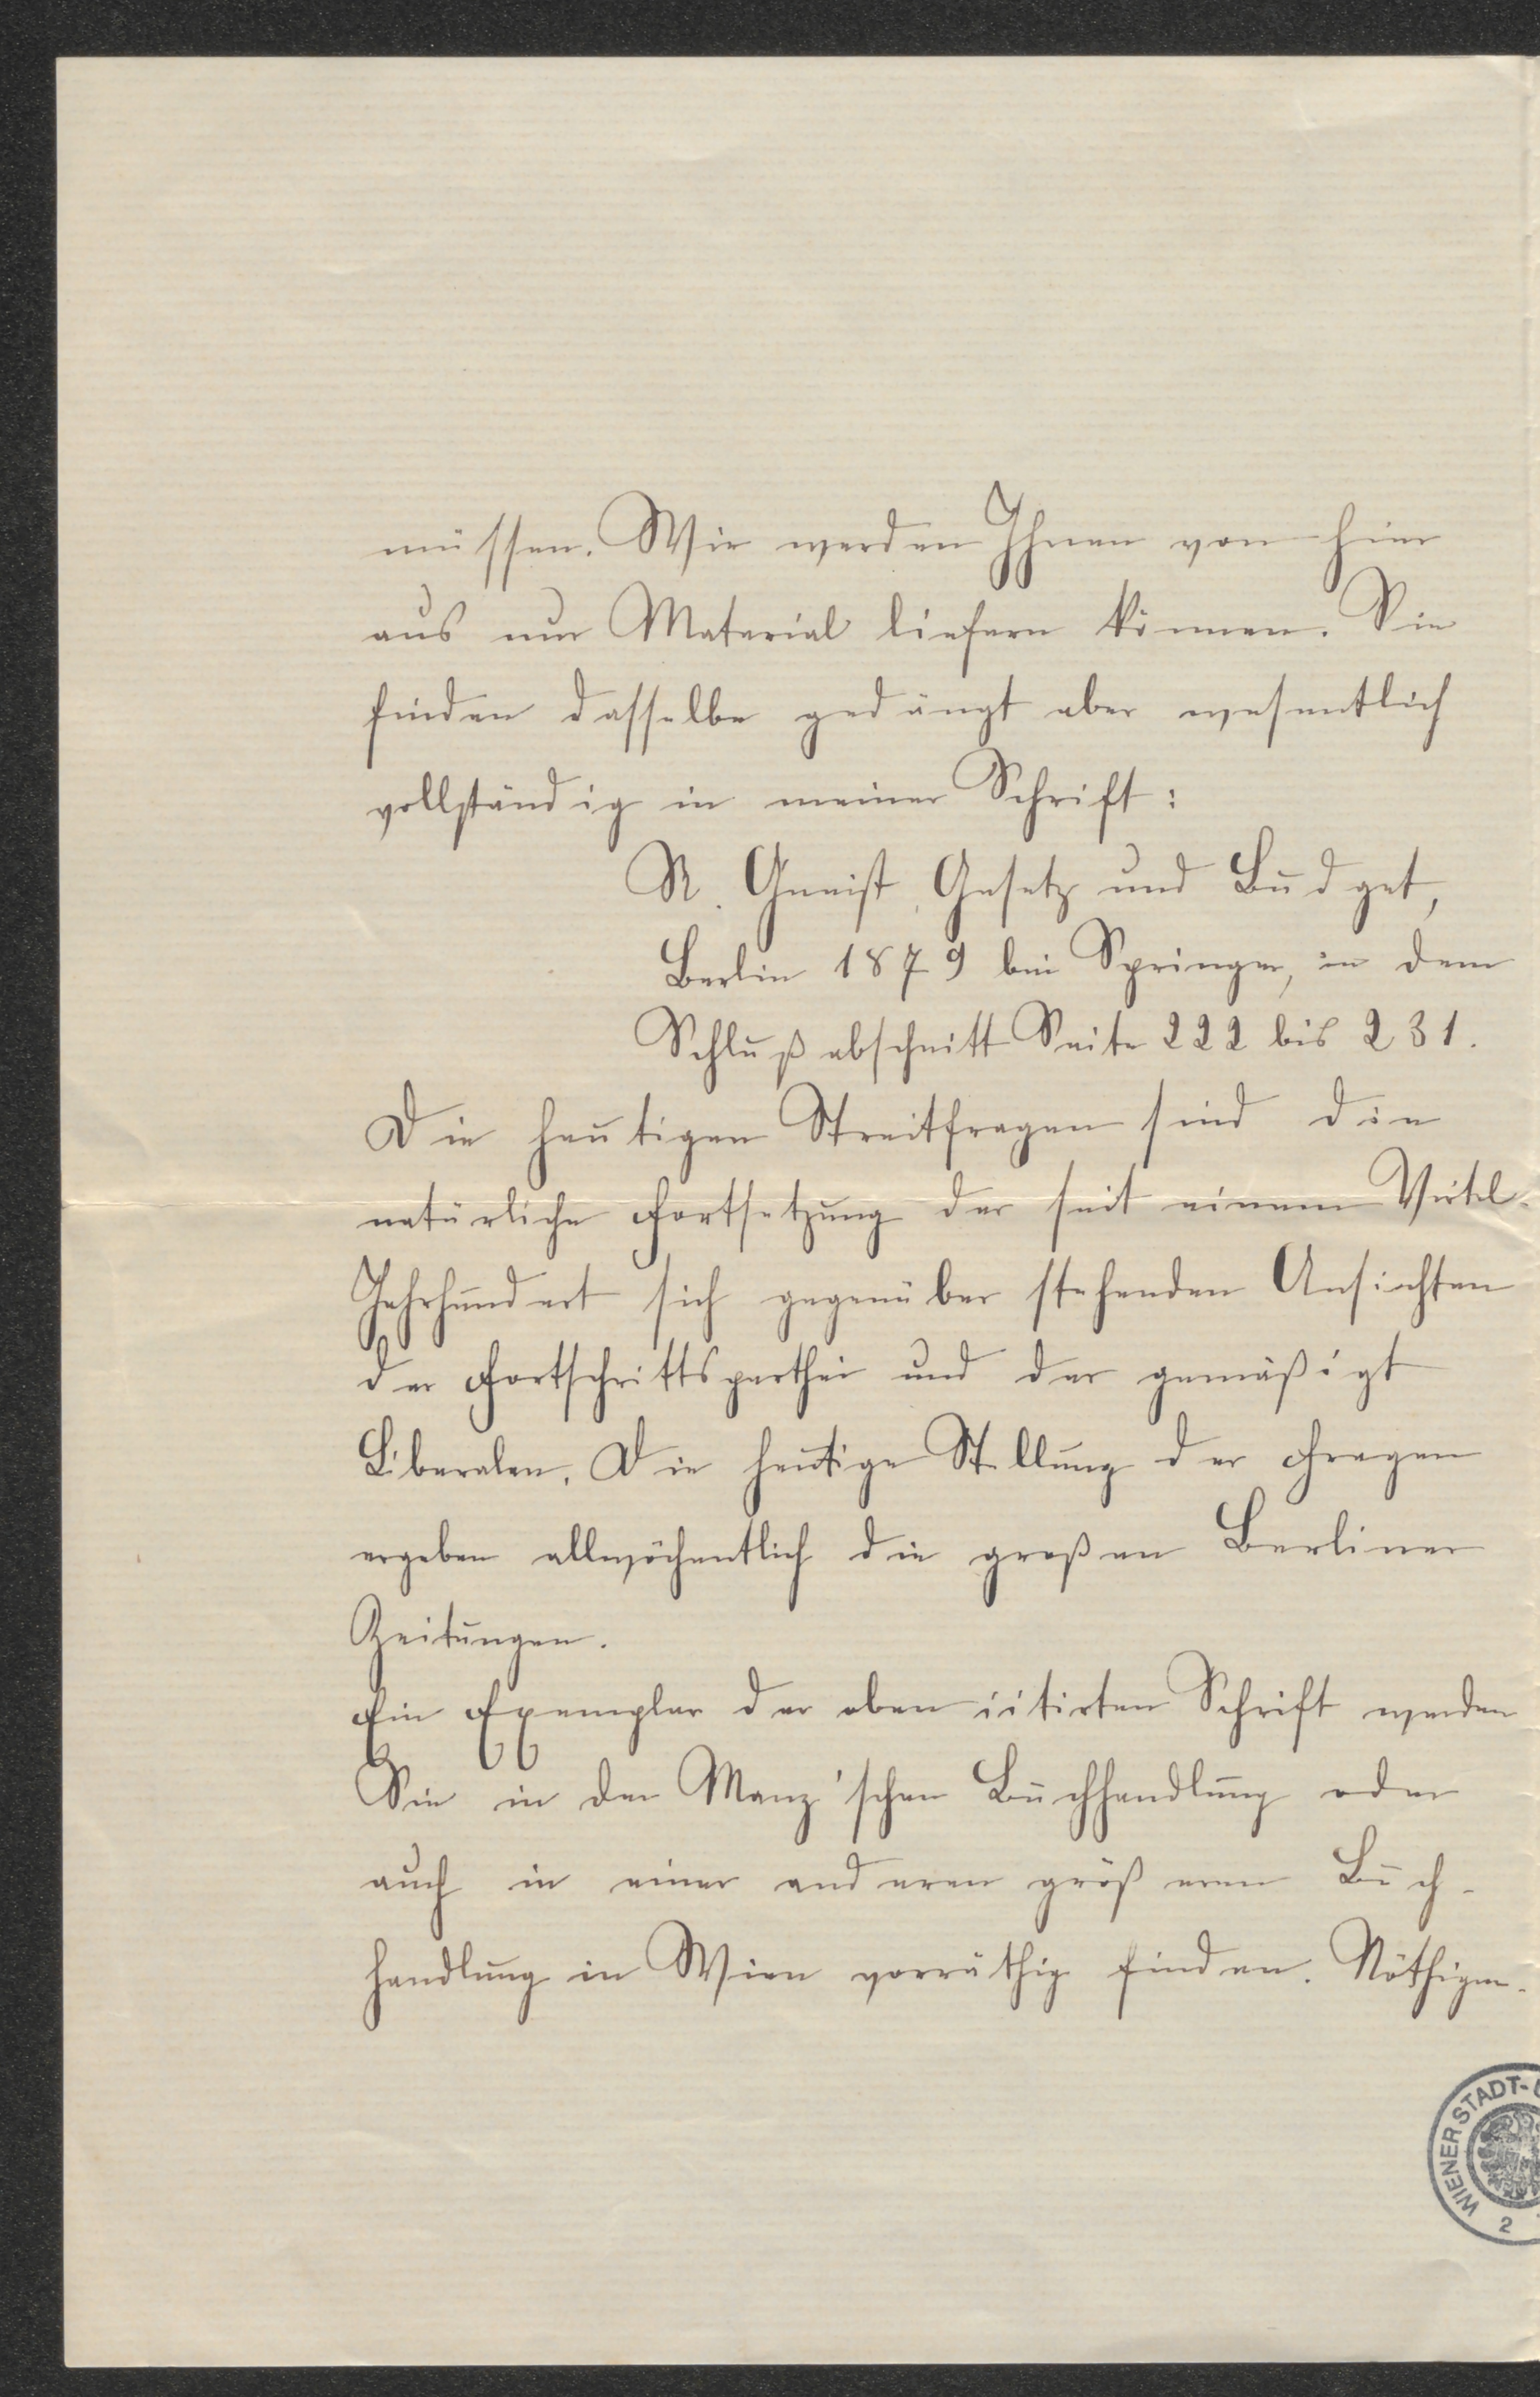 müssen. Wir werden Ihnen von hier
aus nur Material liefern können. Sie
finden dasselbe gedängt aber wesentlich
vollständig in meiner Schrift:
R. Gneist, Gesetz und Budget,
Berlin 1879 bei Springer, in dem
Schlußabschnitt Seite 222 bis 231.
Die heutigen Streitfragen sind die
natürliche Fortsetzung der seit einem Viertel-
Jahrhundert sich gegenüber stehenden Ansichten
der Fortschrittsparthei und der gemäßigt
Liberalen. Die heutige Stellung der Fragen
ergeben allwöchentlich die großen Berliner
Zeitungen.
Ein Exemplar der oben citirten Schrift werden
Sie in der Manz'schen Buchhandlung oder
auch in einer anderen größeren Buch-
handlung in Wien vorräthig finden. Nöthigen-
WIENER STADT-
2